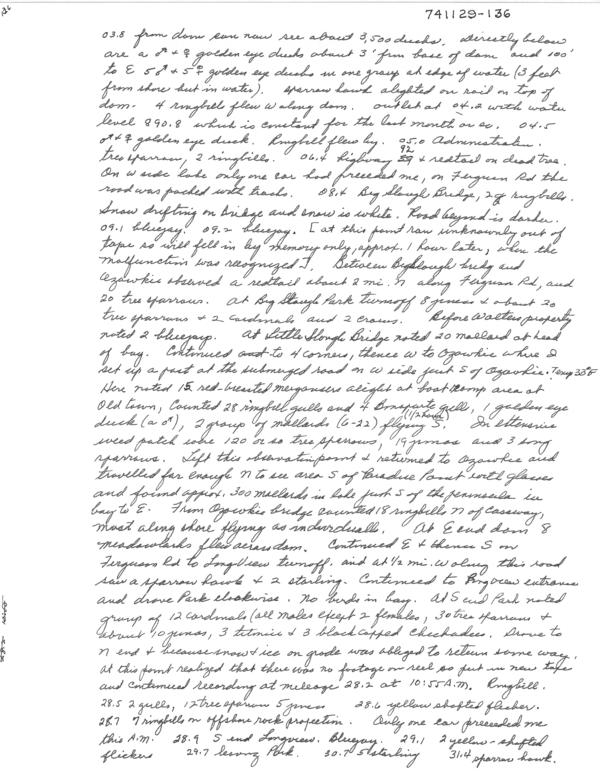 741129-136
03.8 from dam can now see about 3,500 ducks. Directly below
are a ♂ + ♀ golden eye ducks about 3' from base of dam and 100'
to E 5 ♂ + 5 ♀ golden eye ducks in one group at edge of water (3 feet
from shore but in water). Sparrow hawk alighted on rail on top of
dam. 4 ringbill flew W along dam. outlet at 04.2 with water
level 890.8 which is constant for the last month or so. 04.5
♂ + ♀ golden eye duck. Ringbill flew by. 05.0 Administration.
tree sparrow, 2 ringbills. 06.4 highway 92 + redtail on dead tree.
On W side lake only one car had preceeded me, on Ferguson Rd the
road was packed with tracks. 08.4 Big Slough Bridge, 2 ringbills.
Snow drifting on bridge and snow is white. Road beyond is darker.
09.1 bluejay. 09.2 bluejay. [at this point ran unknownly out of
tape so will fill in by memory only, approx. 1 hour later, when the
malfunction was recognized]. Between Big Slough bridg and
Ozawkie observed a redtail about 2 mi. N along Ferguson Rd, and
20 tree sparrows. At Big Slough Park turnoff 8 juncos + about 20
tree sparrows + 2 cardinals and 2 crows. Before Walters property
noted 2 bluejay. At Little Slough Bridge noted 20 mallard at head
of bay. Continued out to 4 corners, thence W to Ozawkie where I
set up a post at the submerged road on W side just S of Ozawkie. Temp 33°F
Here noted 15 red-breasted mergansers alight at boat ramp area at
Old town, Counted 28 ringbill gulls and 4 Bonaparte gulls, 1 golden eye
duck (a ♂), 2 group of mallards (6-22) flying S. (1/2 hour) In extensive
weed patch some 120 or so tree sparrows, 19 juncos and 3 song
sparrows. Left this observation point + returned to Ozawkie and
travelled far enough N to see area S of Paradise Point with glasses
and found approx. 300 mallards in lake just S of the peninsula in
bay to E. From Ozawkie bridge counted 18 ringbills N of causway,
most along shore flying as individuals. At E end dam 8
meadowlarks flew across dam. Continued E + thence S on
Ferguson Rd to Longview turnoff. and at 1/2 mi. W along this road
saw a sparrow hawk + 2 starling. Continued to Longview entrance
and drove Park clockwise. No birds in bay. At S end Park noted
group of 12 cardinals (all males except 2 females, 30 tree sparrows +
about 10 juncos, 3 titmice + 3 black capped chickadees. Drove to
N end + because snow + ice on grade was obliged to return some way.
At this point realized that there was no footage on reel so put in new tape
and continued recording at mileage 28.2 at 10:55 A.M. Ringbill.
28.5 2 gulls, 12 tree sparrow 5 junco 28.6 yellow shafted flicker.
28.7 7 ringbills on offshore rock projection. Only one car preceeded me
this A.M. 28.9 S end Longview. Bluejay. 29.1 2 yellow-shafted
flickers 29.7 leaving Park. 30.7 5 starling 31.4 sparrow hawk.